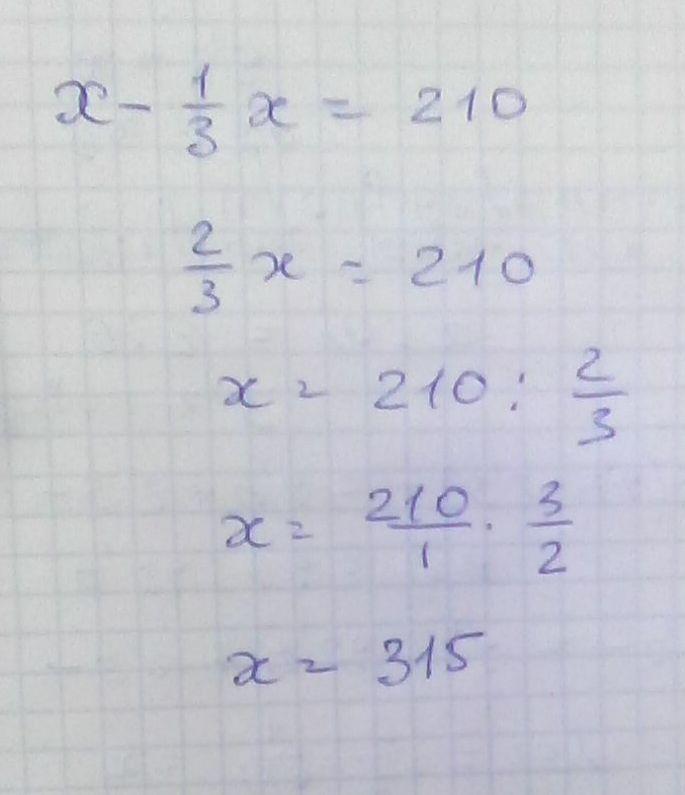 x - 1/3 x = 210
2/3 x = 210
x = 210 : 2/3
x = 210/1 · 3/2
x = 315